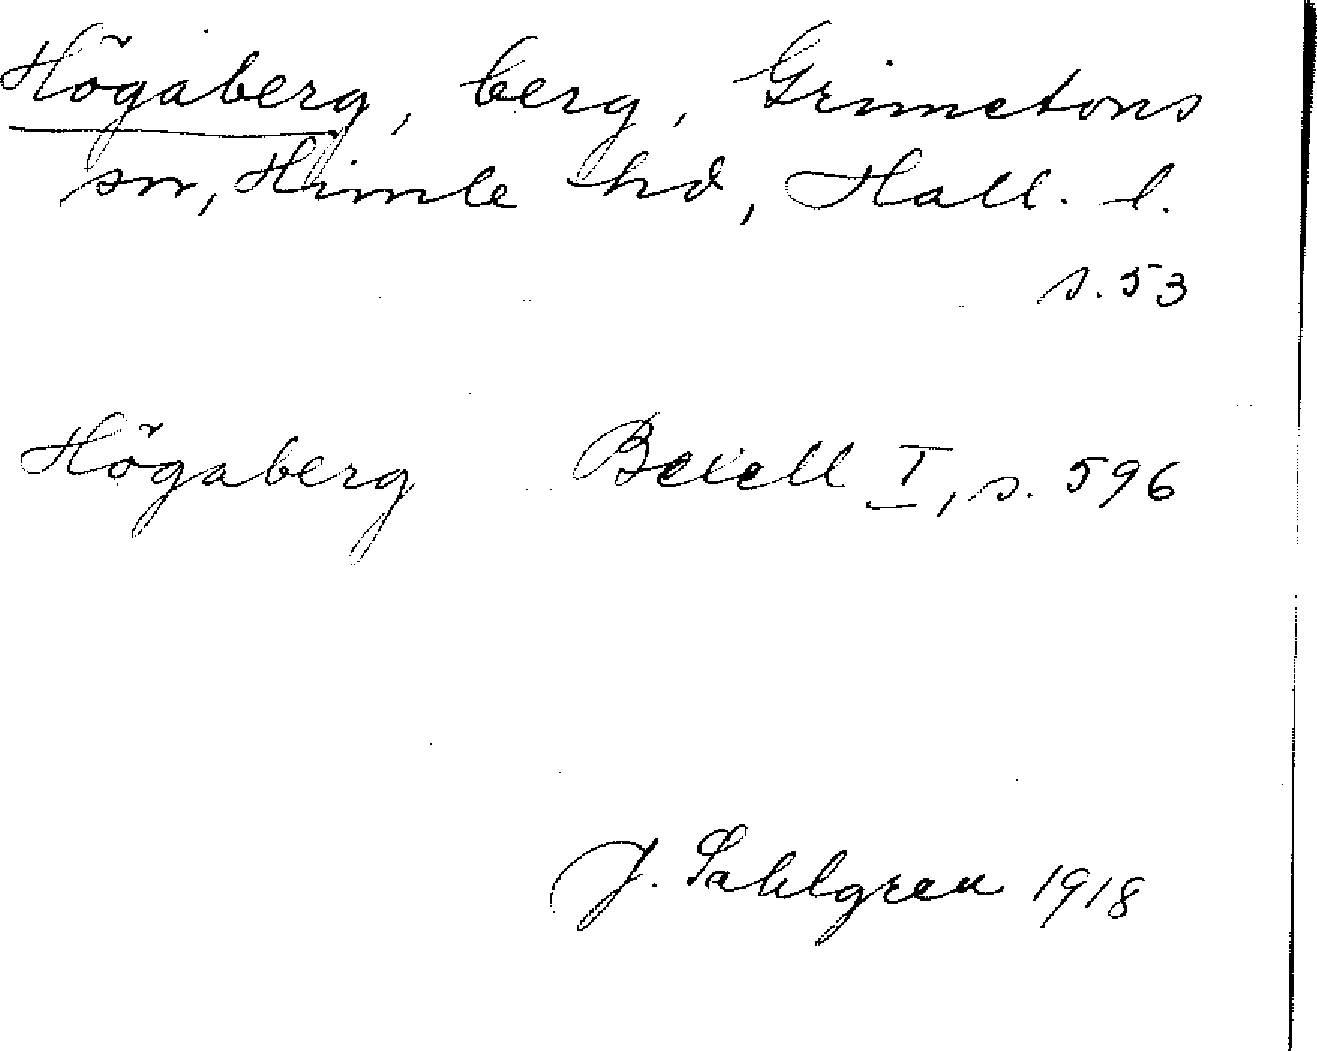 Högaberg, berg, Grimetons
sn, Himle hd, Hall. l.
s. 53
Högaberg Bexell I, s. 596
J. Sahlgren 1918